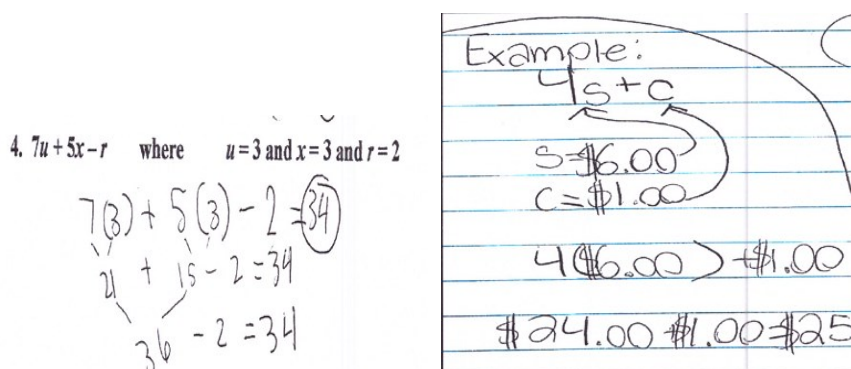 4. 7u + 5x − r where u = 3 and x = 3 and r = 2
7(3) + 5(3) - 2 = 34
21 + 15 - 2 = 34
36 - 2 = 34
Example:
4s + c
S=$6.00
C=$1.00
4($6.00) + $1.00
$24.00 + $1.00 = $25